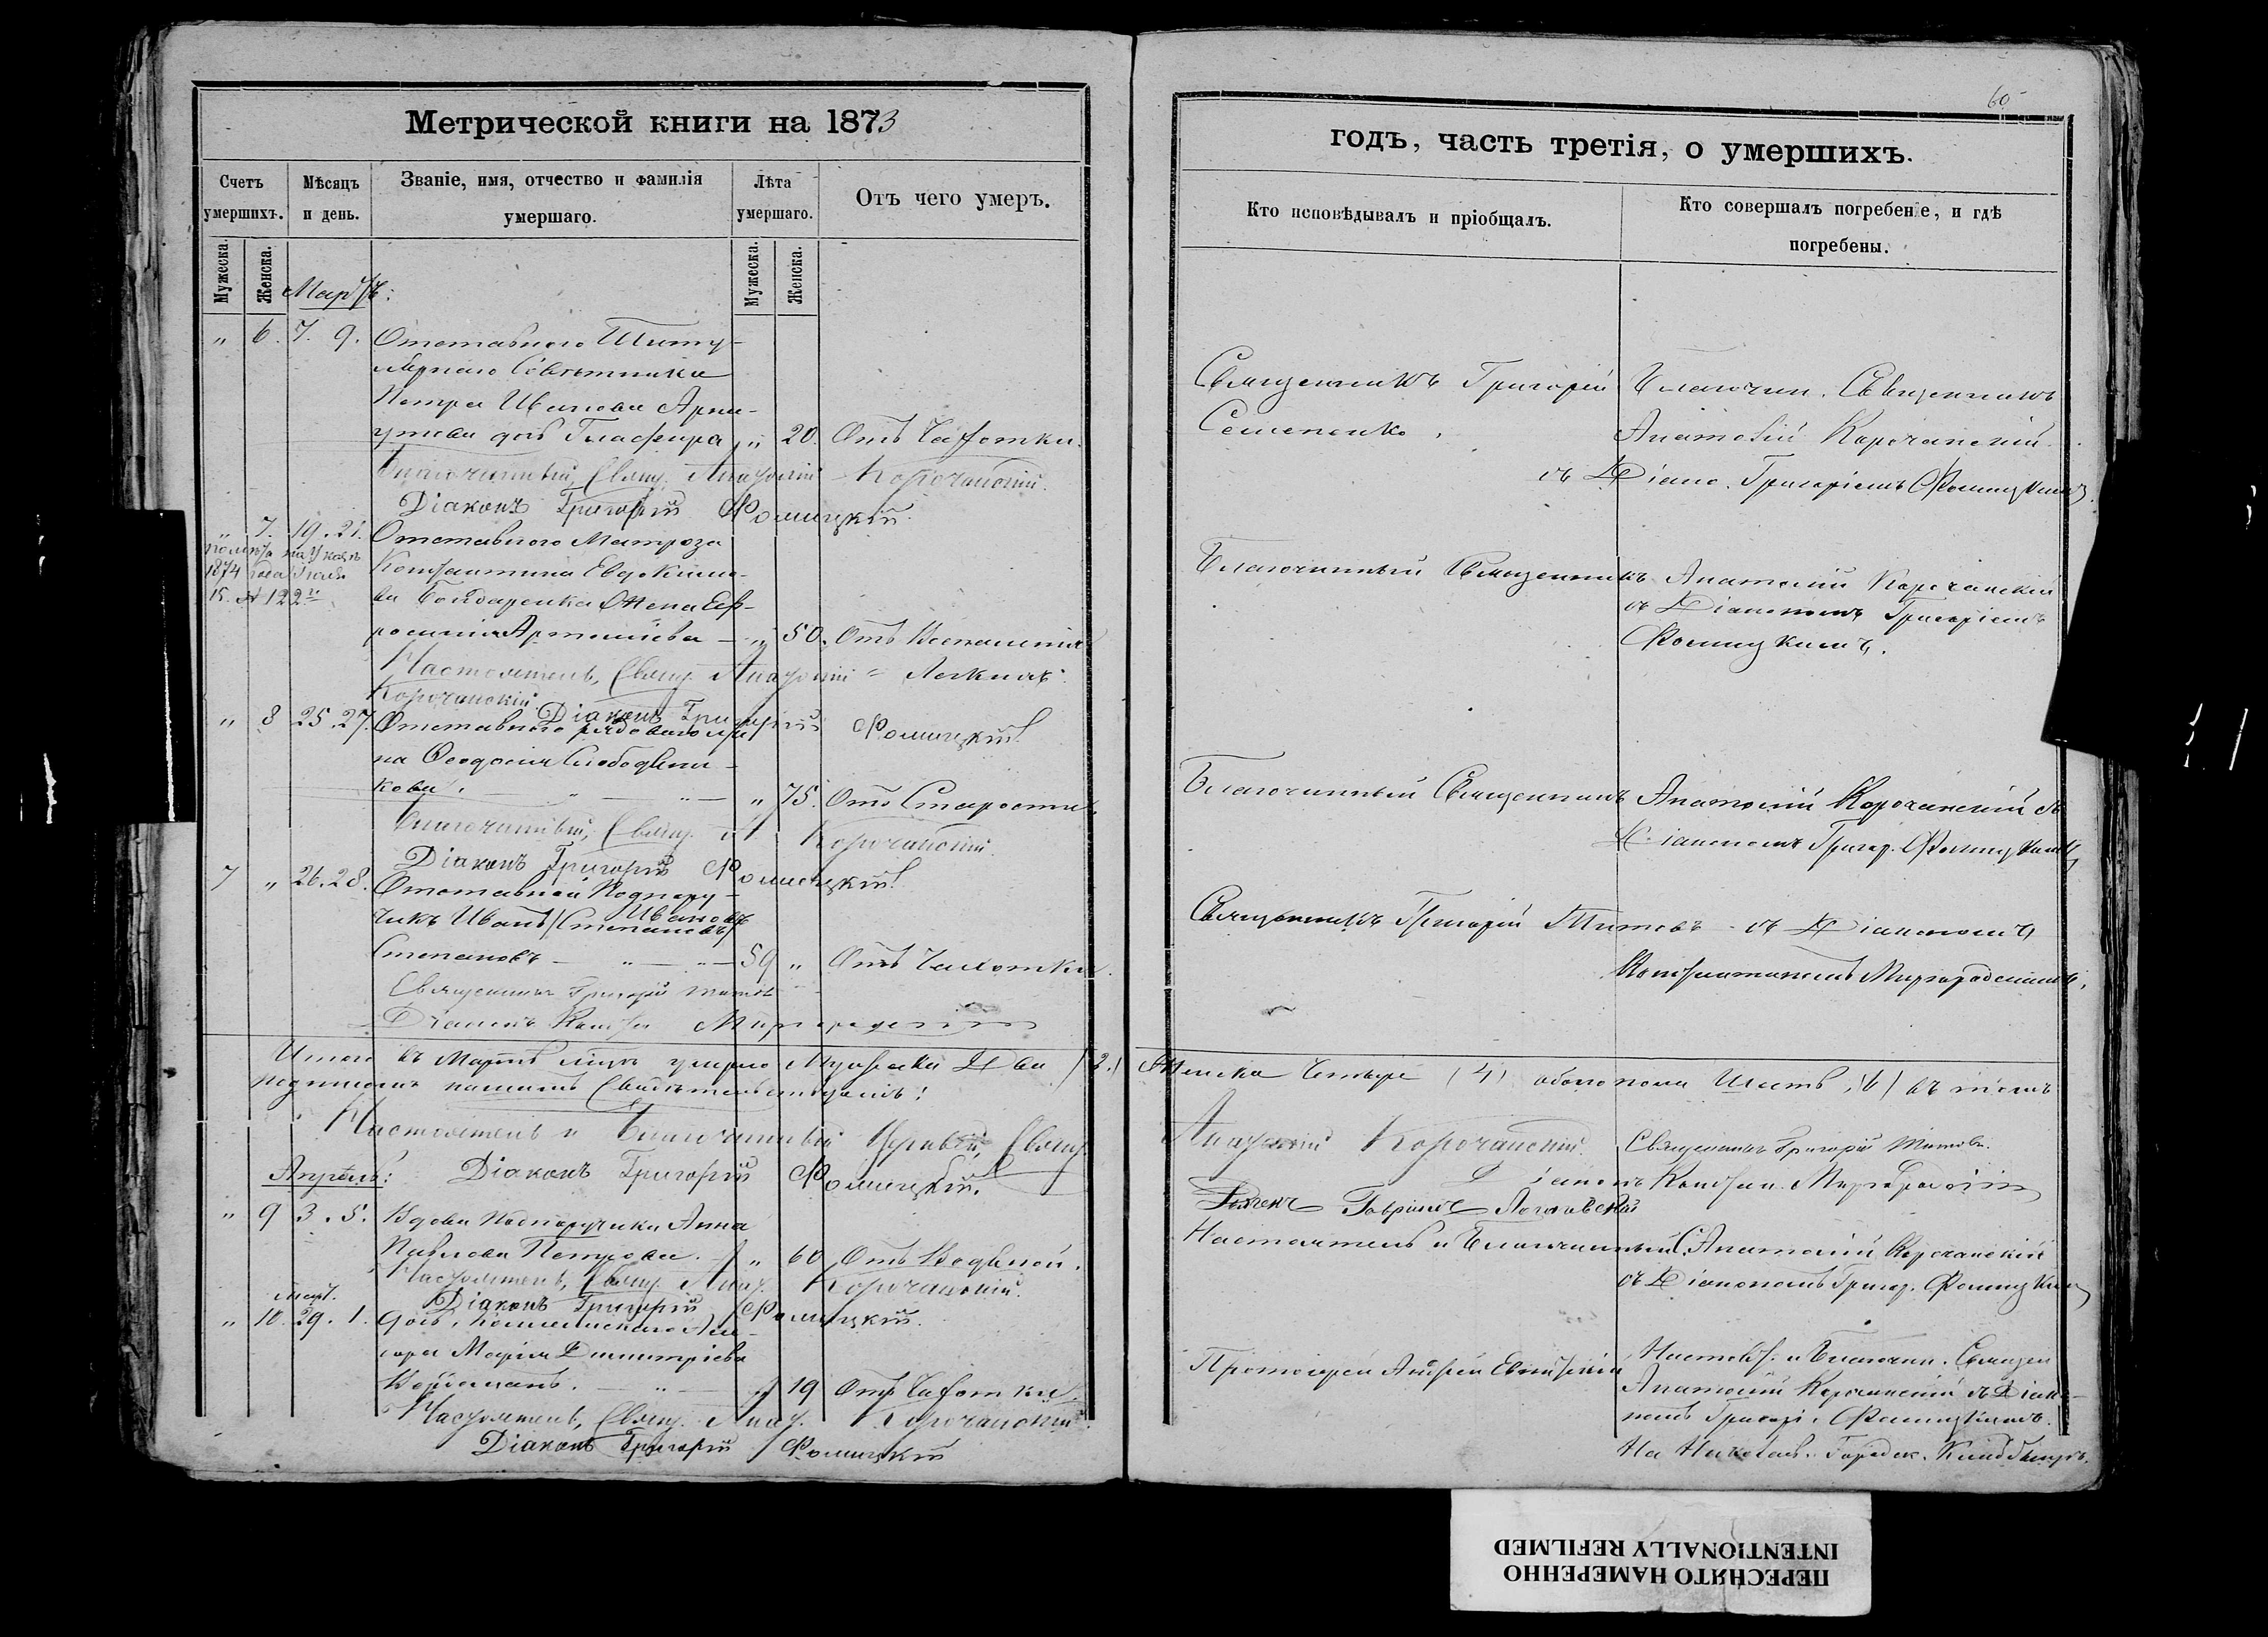 Метрической книги на 1873
Счетъ умершихъ.
Мѣсяцъ и день.
Званіе, имя, отчество и фамилія умершаго.
Лѣта умершаго.
Отъ чего умеръ.
Мужеска.
Женска.
Мужеска.
Женска.
Мартъ:
" 6. 7. 9. Отставного Титу-
лярнаго Совѣтника
Петра Иванова Арна-
утова дочь Глафира " 20. Отъ Чахотки.
Благочинный, Свящ. Анатолій Корочанскій.
Діаконъ Григорій Фомицкій.
" 7. 19. 21. Отставного Матроза
1874 года
15. № 122
Константина Евдокимо-
ва Бондаренка Жена Ев-
росинія Артеміева — " 50. Отъ Воспаленія
Настоятель, Свящ. Анатолій Легкихъ.
Корочанскій. Діаконъ Григорій Фомицкій.
" 8 25. 27. Отставного рядового
на Ѳеодосія Слободяни-
кова. — " — " — " 75. Отъ Старости.
Благочинный, Свящ. А. Корочанскій.
Діаконъ Григорій Фомицкій.
7 " 26. 28. Отставной Подпору-
чикъ Иванъ (Степановъ) Ивановъ
Степановъ — " — " — 59 " Отъ Чахотки.
Священникъ Григорій Титовъ
Діаконъ Конст. Миргородскій
Итого въ Мартѣ мцѣ умерло Мужеска Два (2.)
подписомъ нашимъ Свидѣтельствуемъ:
Настоятель и Благочинный Церквей, Свящ.
Діаконъ Григорій Фомицкій.
Апрѣль:
" 9 3. 5. Вдова Подпоручика Анна
Павлова Петрова. " 60 Отъ Водяной.
Настоятель, Свящ. Анат. Корочанскій.
Діаконъ Григорій Фомицкій.
Март.
" 10. 29. 1. Дочь Коллежскаго Асе-
сора Марія Димитріева
— " — " 19 Отъ Чахотки.
Настоятель, Свящ. Анат. Корочанскій.
Діаконъ Григорій Фомицкій
60
годъ, часть третія, о умершихъ.
Кто исповѣдывалъ и пріобщалъ.
Кто совершалъ погребеніе, и гдѣ погребены.
Священникъ Григорій Благочин. Священникъ
Семененко. Анатолій Корочанскій
съ Діако. Григоріемъ Фомицкимъ.
Благочинный Священникъ Анатолій Корочанскій
съ Діакономъ Григоріемъ
Фомицкимъ.
Благочинный Священникъ Анатолій Корочанскій съ
Діакономъ Григор. Фомицкимъ
Священникъ Григорій Титовъ съ Діакономъ
Константиномъ Миргородскимъ.
Женска Четыре (4) обоего пола Шесть (6) въ томъ
Анатолій Корочанскій. Священникъ Григорій Титовъ.
Діаконъ Констан. Миргородскій
Настоятель и Благочинный С. Анатолій Корочанскій
съ Діакономъ Григор. Фомицкимъ
Протоіерей Андрей Настоят. и Благочин. Священ
Анатолій Корочанскій съ Діако-
номъ Григорі. Фомицкимъ.
На Николаев. Городск. Кладбищѣ.
ПЕРЕСНЯТО НАМЕРЕННО
INTENTIONALLY REFILMED